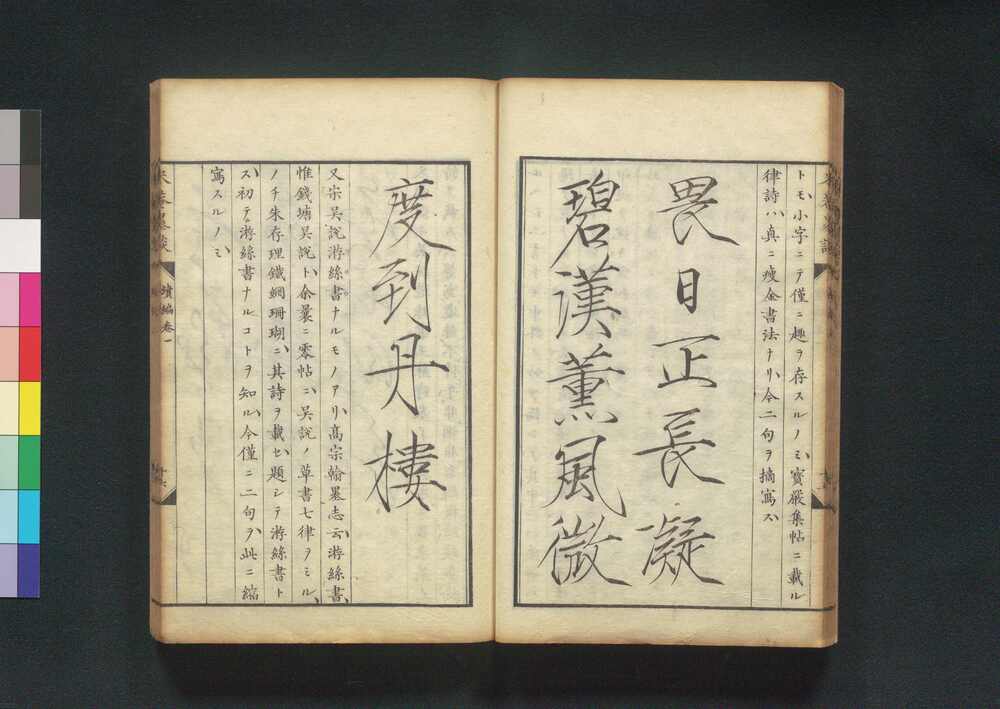 トモ、小字ニテ僅ニ趣ヲ存スルノミ、寳嚴集帖ニ載ル
律詩ハ、真ニ瘦金書法ナリ、今二句ヲ摘寫ス、
畏日正長凝
碧漢薰風微
度到丹樓
又宋吳說游絲書ナルモノアリ、高宗翰墨志云、游絲書、
惟錢塘吳說ト、余曩ニ零帖ニ、吳說ノ草書七律ヲミル、
ノチ朱存理鐵網珊瑚ニ、其詩ヲ載セ、題シテ游絲書ト
ス、初テ游絲書ナルコトヲ知ル、今僅ニ二句ヲ、此ニ縮
寫スルノミ、
續編卷一